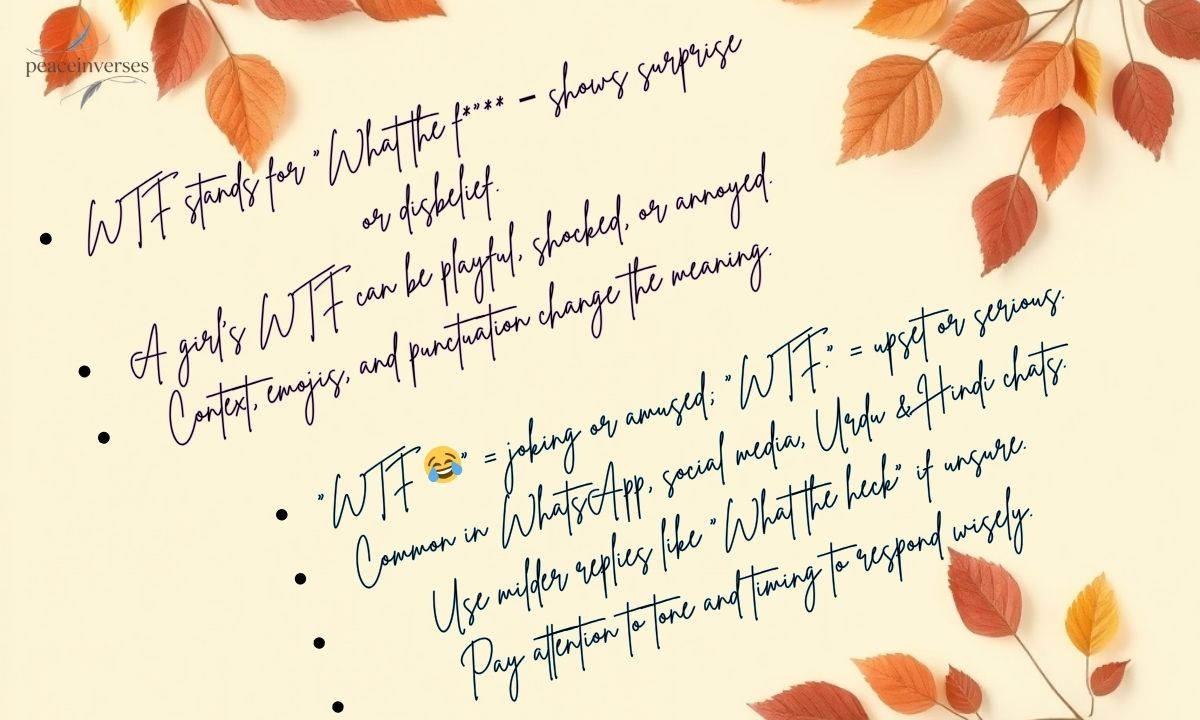 peaceinverses
• WTF stands for "What the f**** – shows surprise
or disbelief.
• A girl's WTF can be playful, shocked, or annoyed.
• Context, emojis, and punctuation change the meaning.
• "WTF😂" = joking or amused; "WTF." = upset or serious.
• Common in WhatsApp, social media, Urdu & Hindi chats.
• Use milder replies like "What the heck" if unsure.
• Pay attention to tone and timing to respond wisely.